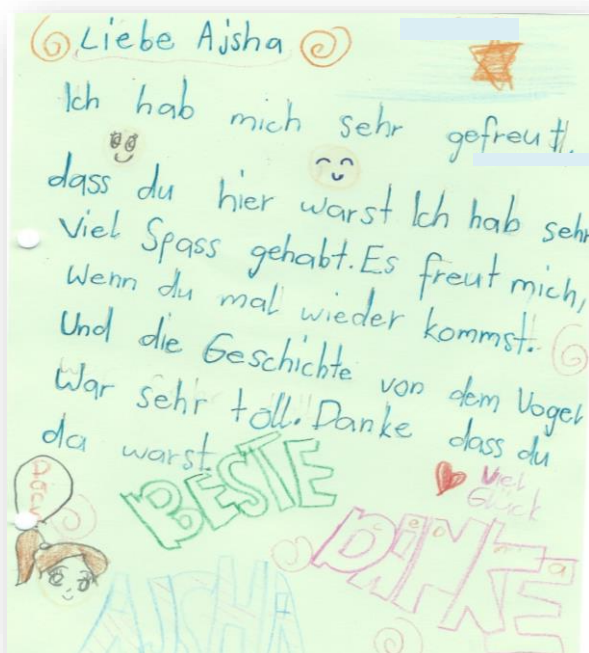 Liebe Ajsha
Ich hab mich sehr gefreut.
dass du hier warst Ich hab sehr
Viel Spass gehabt. Es freut mich,
Wenn du mal wieder kommst.
Und die Geschichte von dem Vogel
War sehr toll. Danke dass du
da warst.
BESTE
Viel
Glück
DANKE
AJSHA